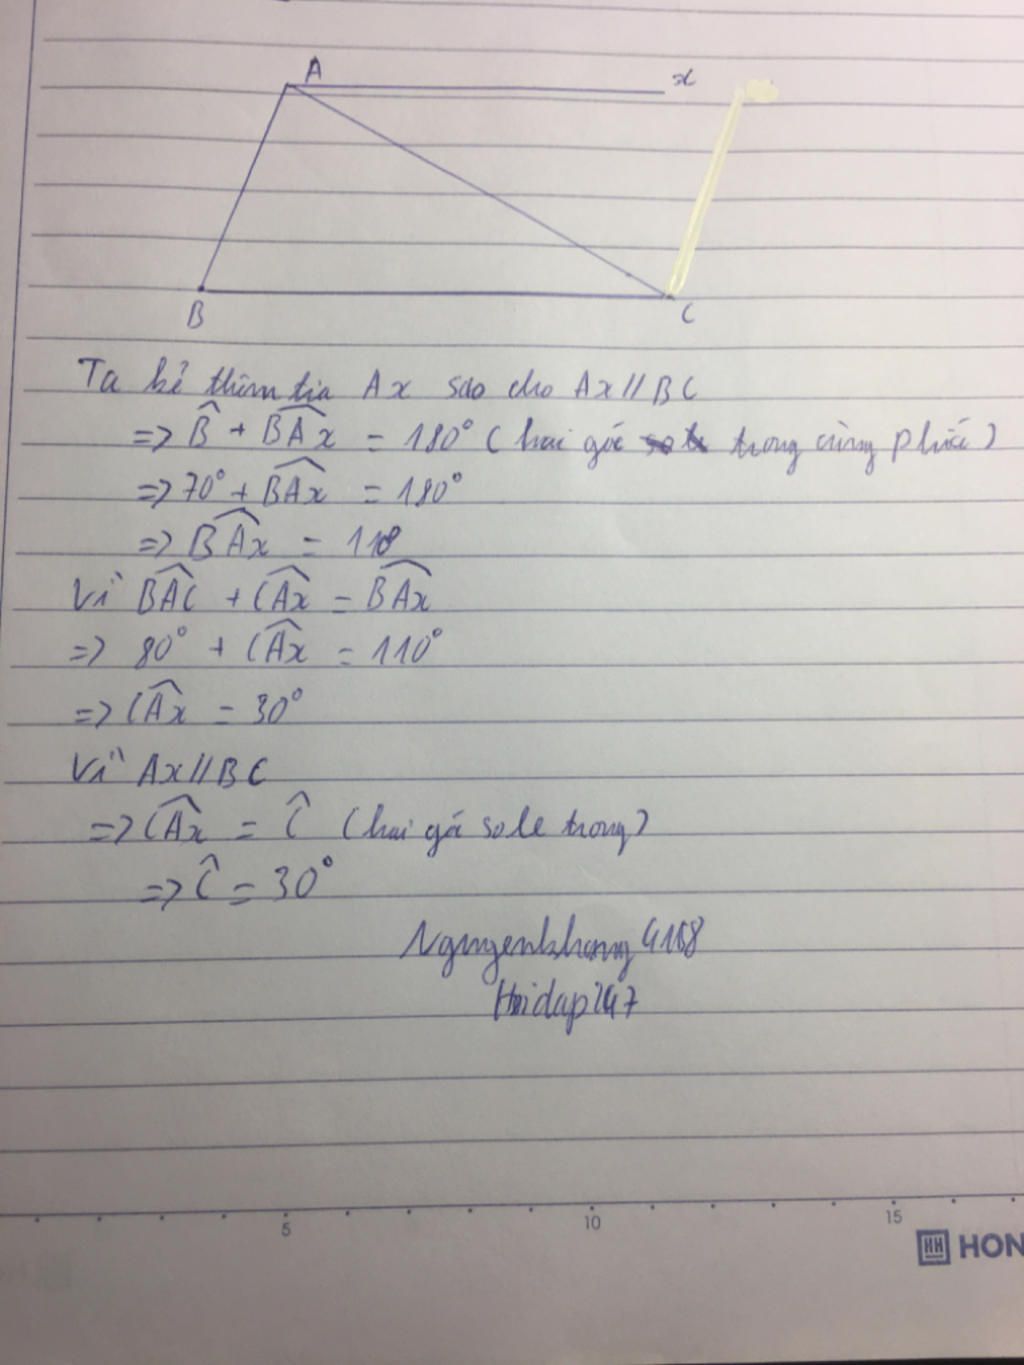 A x
B C
Ta kẻ thêm tia Ax sao cho Ax // BC
=> B̂ + BÂx = 180° (hai góc trong cùng phía)
=> 70° + BÂx = 180°
=> BÂx = 110
Vì BÂC + CÂx = BÂx
=> 80° + CÂx = 110°
=> CÂx = 30°
Vì Ax // BC
=> CÂx = Ĉ (hai góc so le trong)
=> Ĉ = 30°
Hoidap247
5 10 15
HON